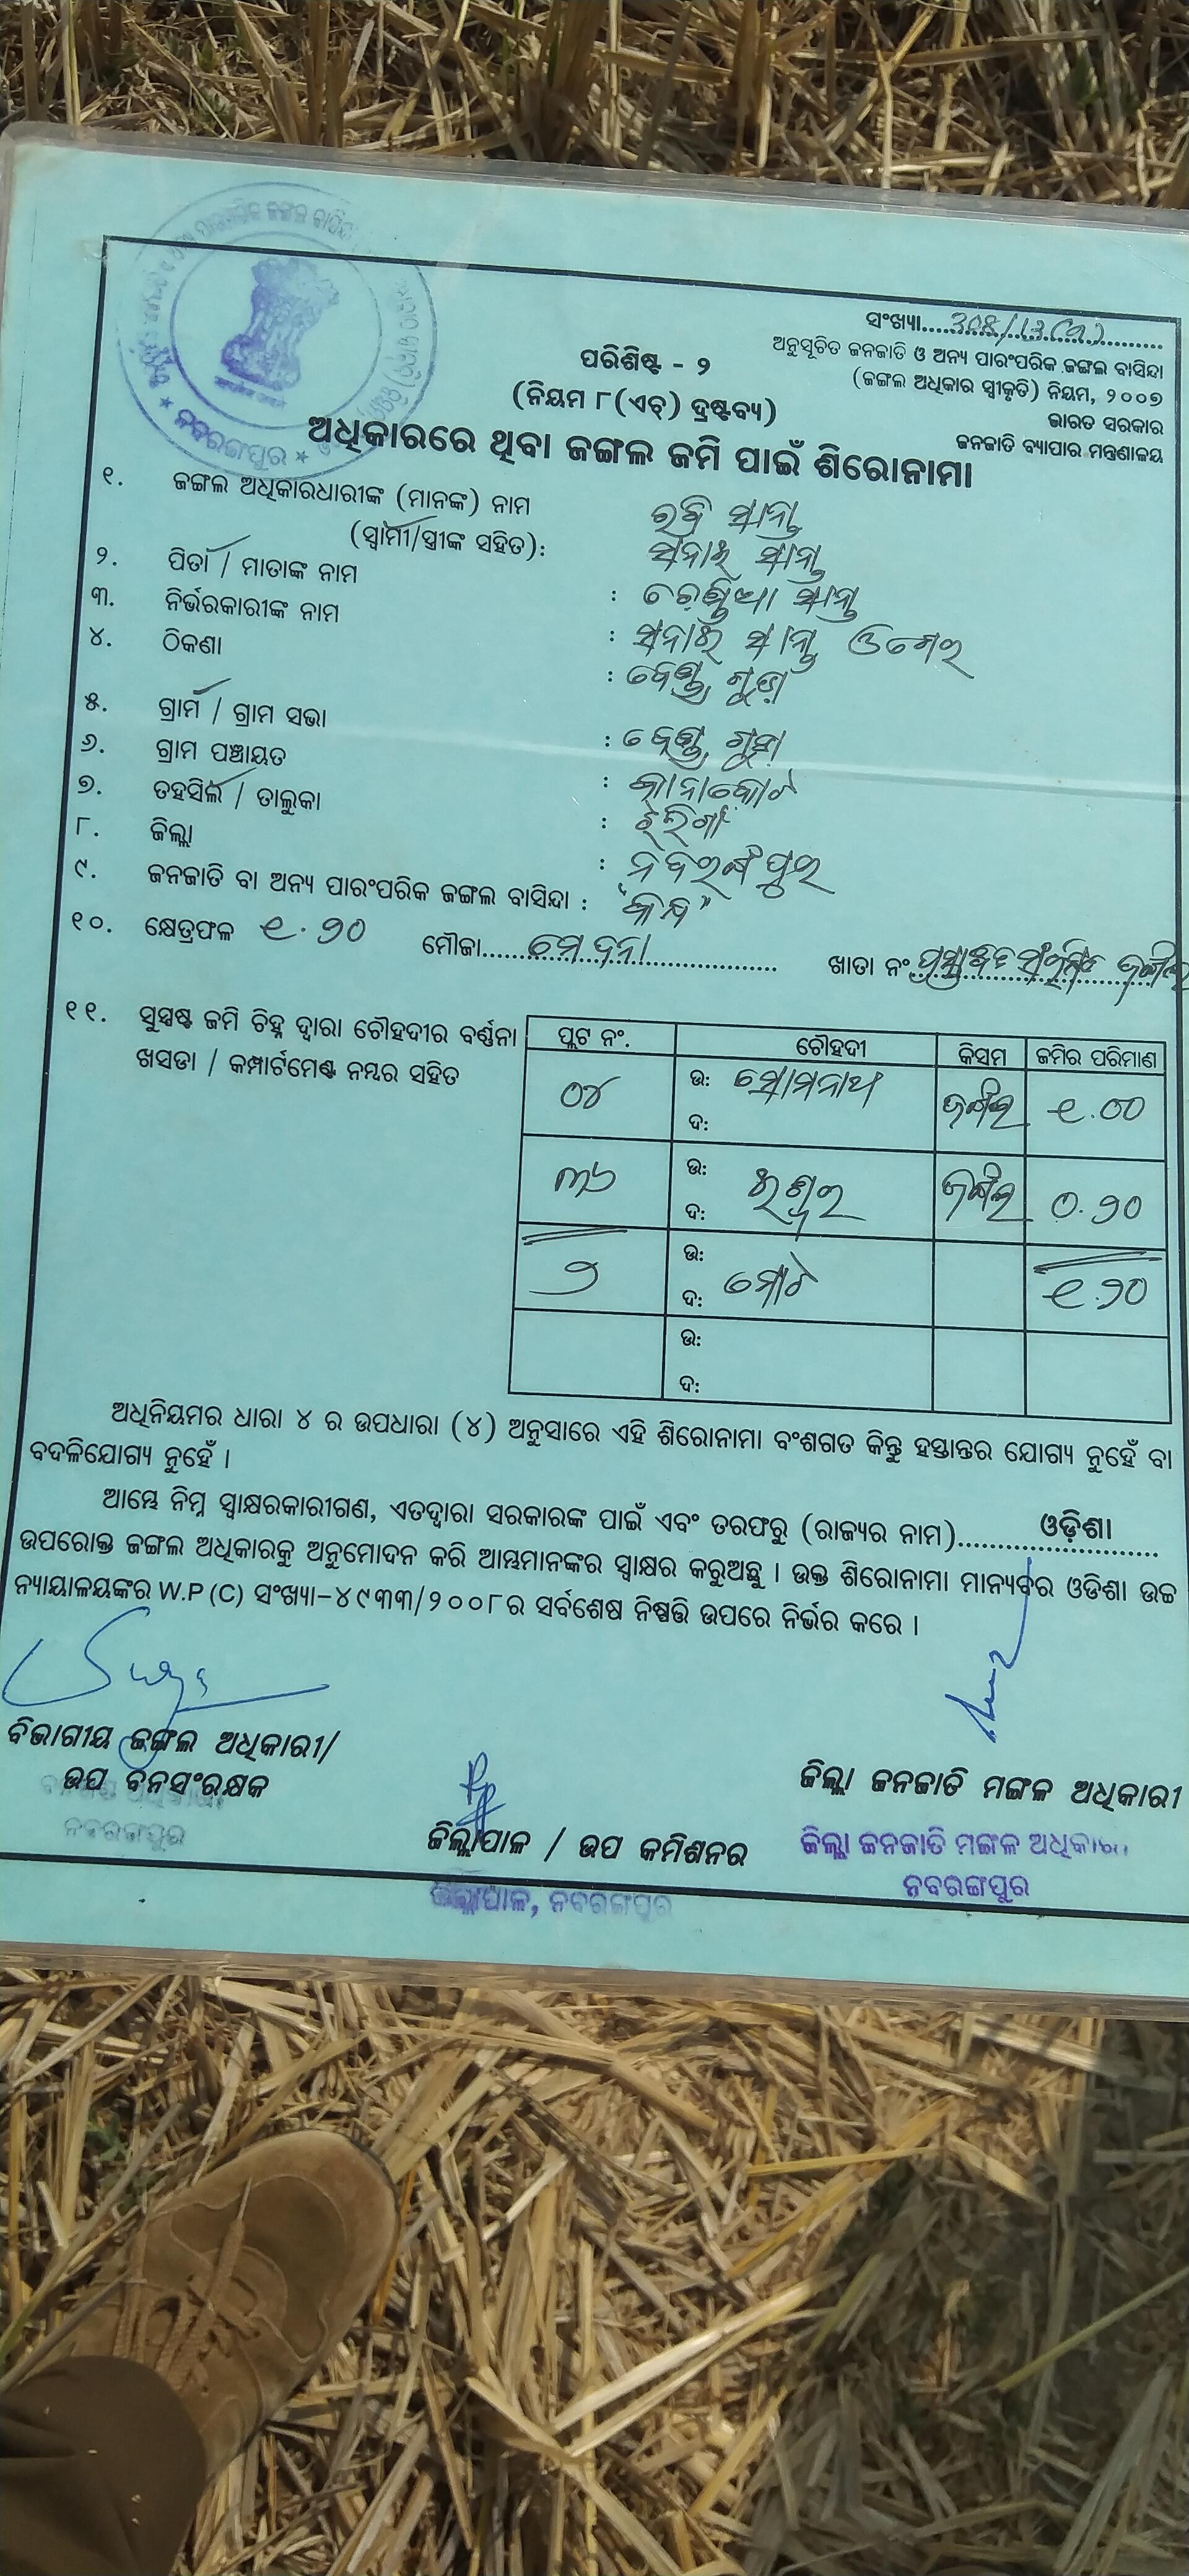 ସଂଖ୍ୟା
ଅନୁସୂଚିତ ଜନଜାତି ଓ ଅନ୍ୟ ପାରଂପରିକ ଜଙ୍ଗଲ ବାସିନ୍ଦା
(ଜଙ୍ଗଲ ଅଧିକାର ସ୍ୱୀକୃତି) ନିୟମ, ୨୦୦୭
ଭାରତ ସରକାର
ଜନଜାତି ବ୍ୟାପାର ମନ୍ତ୍ରଣାଳୟ
ପରିଶିଷ୍ଟ - ୨
(ନିୟମ ୮(ଏଚ୍) ଦ୍ରଷ୍ଟବ୍ୟ)
ଅଧିକାରରେ ଥିବା ଜଙ୍ଗଲ ଜମି ପାଇଁ ଶିରୋନାମା
ନବରଙ୍ଗପୁର
୧. ଜଙ୍ଗଲ ଅଧିକାରଧାରୀଙ୍କ (ମାନଙ୍କ) ନାମ ରବି ସାନ୍ତା
(ସ୍ୱାମୀ/ସ୍ତ୍ରୀଙ୍କ ସହିତ): ସାନ୍ତା
୨. ପିତା / ମାତାଙ୍କ ନାମ : ସାନ୍ତା
୩. ନିର୍ଭରକାରୀଙ୍କ ନାମ : ସାନ୍ତା
୪. ଠିକଣା :
୫. ଗ୍ରାମ / ଗ୍ରାମ ସଭା :
୬. ଗ୍ରାମ ପଞ୍ଚାୟତ :
୭. ତହସିଲ / ତାଲୁକା : ଝରିଗାଁ
୮. ଜିଲ୍ଲା : ନବରଙ୍ଗପୁର
୯. ଜନଜାତି ବା ଅନ୍ୟ ପାରଂପରିକ ଜଙ୍ଗଲ ବାସିନ୍ଦା : "କନ୍ଧ"
୧୦. କ୍ଷେତ୍ରଫଳ ୧.୨୦ ମୌଜା ମେଦନା ଖାତା ନଂ ଜଙ୍ଗଲ
୧୧. ସୁସ୍ପଷ୍ଟ ଜମି ଚିହ୍ନ ଦ୍ୱାରା ଚୌହଦୀର ବର୍ଣ୍ଣନା
ଖସଡା / କମ୍ପାର୍ଟମେଣ୍ଟ ନମ୍ବର ସହିତ
ପ୍ଲଟ ନଂ. ଚୌହଦୀ କିସମ ଜମିର ପରିମାଣ
୦୪ ଉ: ସୋମନାଥ ଜଙ୍ଗଲ ୧.୦୦
ଦ:
୩୬ ଉ: ଈଶ୍ୱର ଜଙ୍ଗଲ ୦.୨୦
ଦ:
୨ ଉ: ମୋଟ ୧.୨୦
ଦ:
ଉ:
ଦ:
ଅଧିନିୟମର ଧାରା ୪ ର ଉପଧାରା (୪) ଅନୁସାରେ ଏହି ଶିରୋନାମା ବଂଶଗତ କିନ୍ତୁ ହସ୍ତାନ୍ତର ଯୋଗ୍ୟ ନୁହେଁ ବା
ବଦଳିଯୋଗ୍ୟ ନୁହେଁ ।
ଆମ୍ଭେ ନିମ୍ନ ସ୍ୱାକ୍ଷରକାରୀଗଣ, ଏତଦ୍ଦ୍ୱାରା ସରକାରଙ୍କ ପାଇଁ ଏବଂ ତରଫରୁ (ରାଜ୍ୟର ନାମ) ଓଡ଼ିଶା
ଉପରୋକ୍ତ ଜଙ୍ଗଲ ଅଧିକାରକୁ ଅନୁମୋଦନ କରି ଆମ୍ଭମାନଙ୍କର ସ୍ୱାକ୍ଷର କରୁଅଛୁ । ଉକ୍ତ ଶିରୋନାମା ମାନ୍ୟବର ଓଡିଶା ଉଚ୍ଚ
ନ୍ୟାୟାଳୟଙ୍କର W.P (C) ସଂଖ୍ୟା-୪୯୩୩/୨୦୦୮ର ସର୍ବଶେଷ ନିଷ୍ପତ୍ତି ଉପରେ ନିର୍ଭର କରେ ।
ବିଭାଗୀୟ ଜଙ୍ଗଲ ଅଧିକାରୀ/
ଉପ ବନସଂରକ୍ଷକ
ନବରଙ୍ଗପୁର
ଜିଲ୍ଲାପାଳ / ଉପ କମିଶନର
ଜିଲ୍ଲାପାଳ, ନବରଙ୍ଗପୁର
ଜିଲ୍ଲା ଜନଜାତି ମଙ୍ଗଳ ଅଧିକାରୀ
ଜିଲ୍ଲା ଜନଜାତି ମଙ୍ଗଳ ଅଧିକାରୀ
ନବରଙ୍ଗପୁର